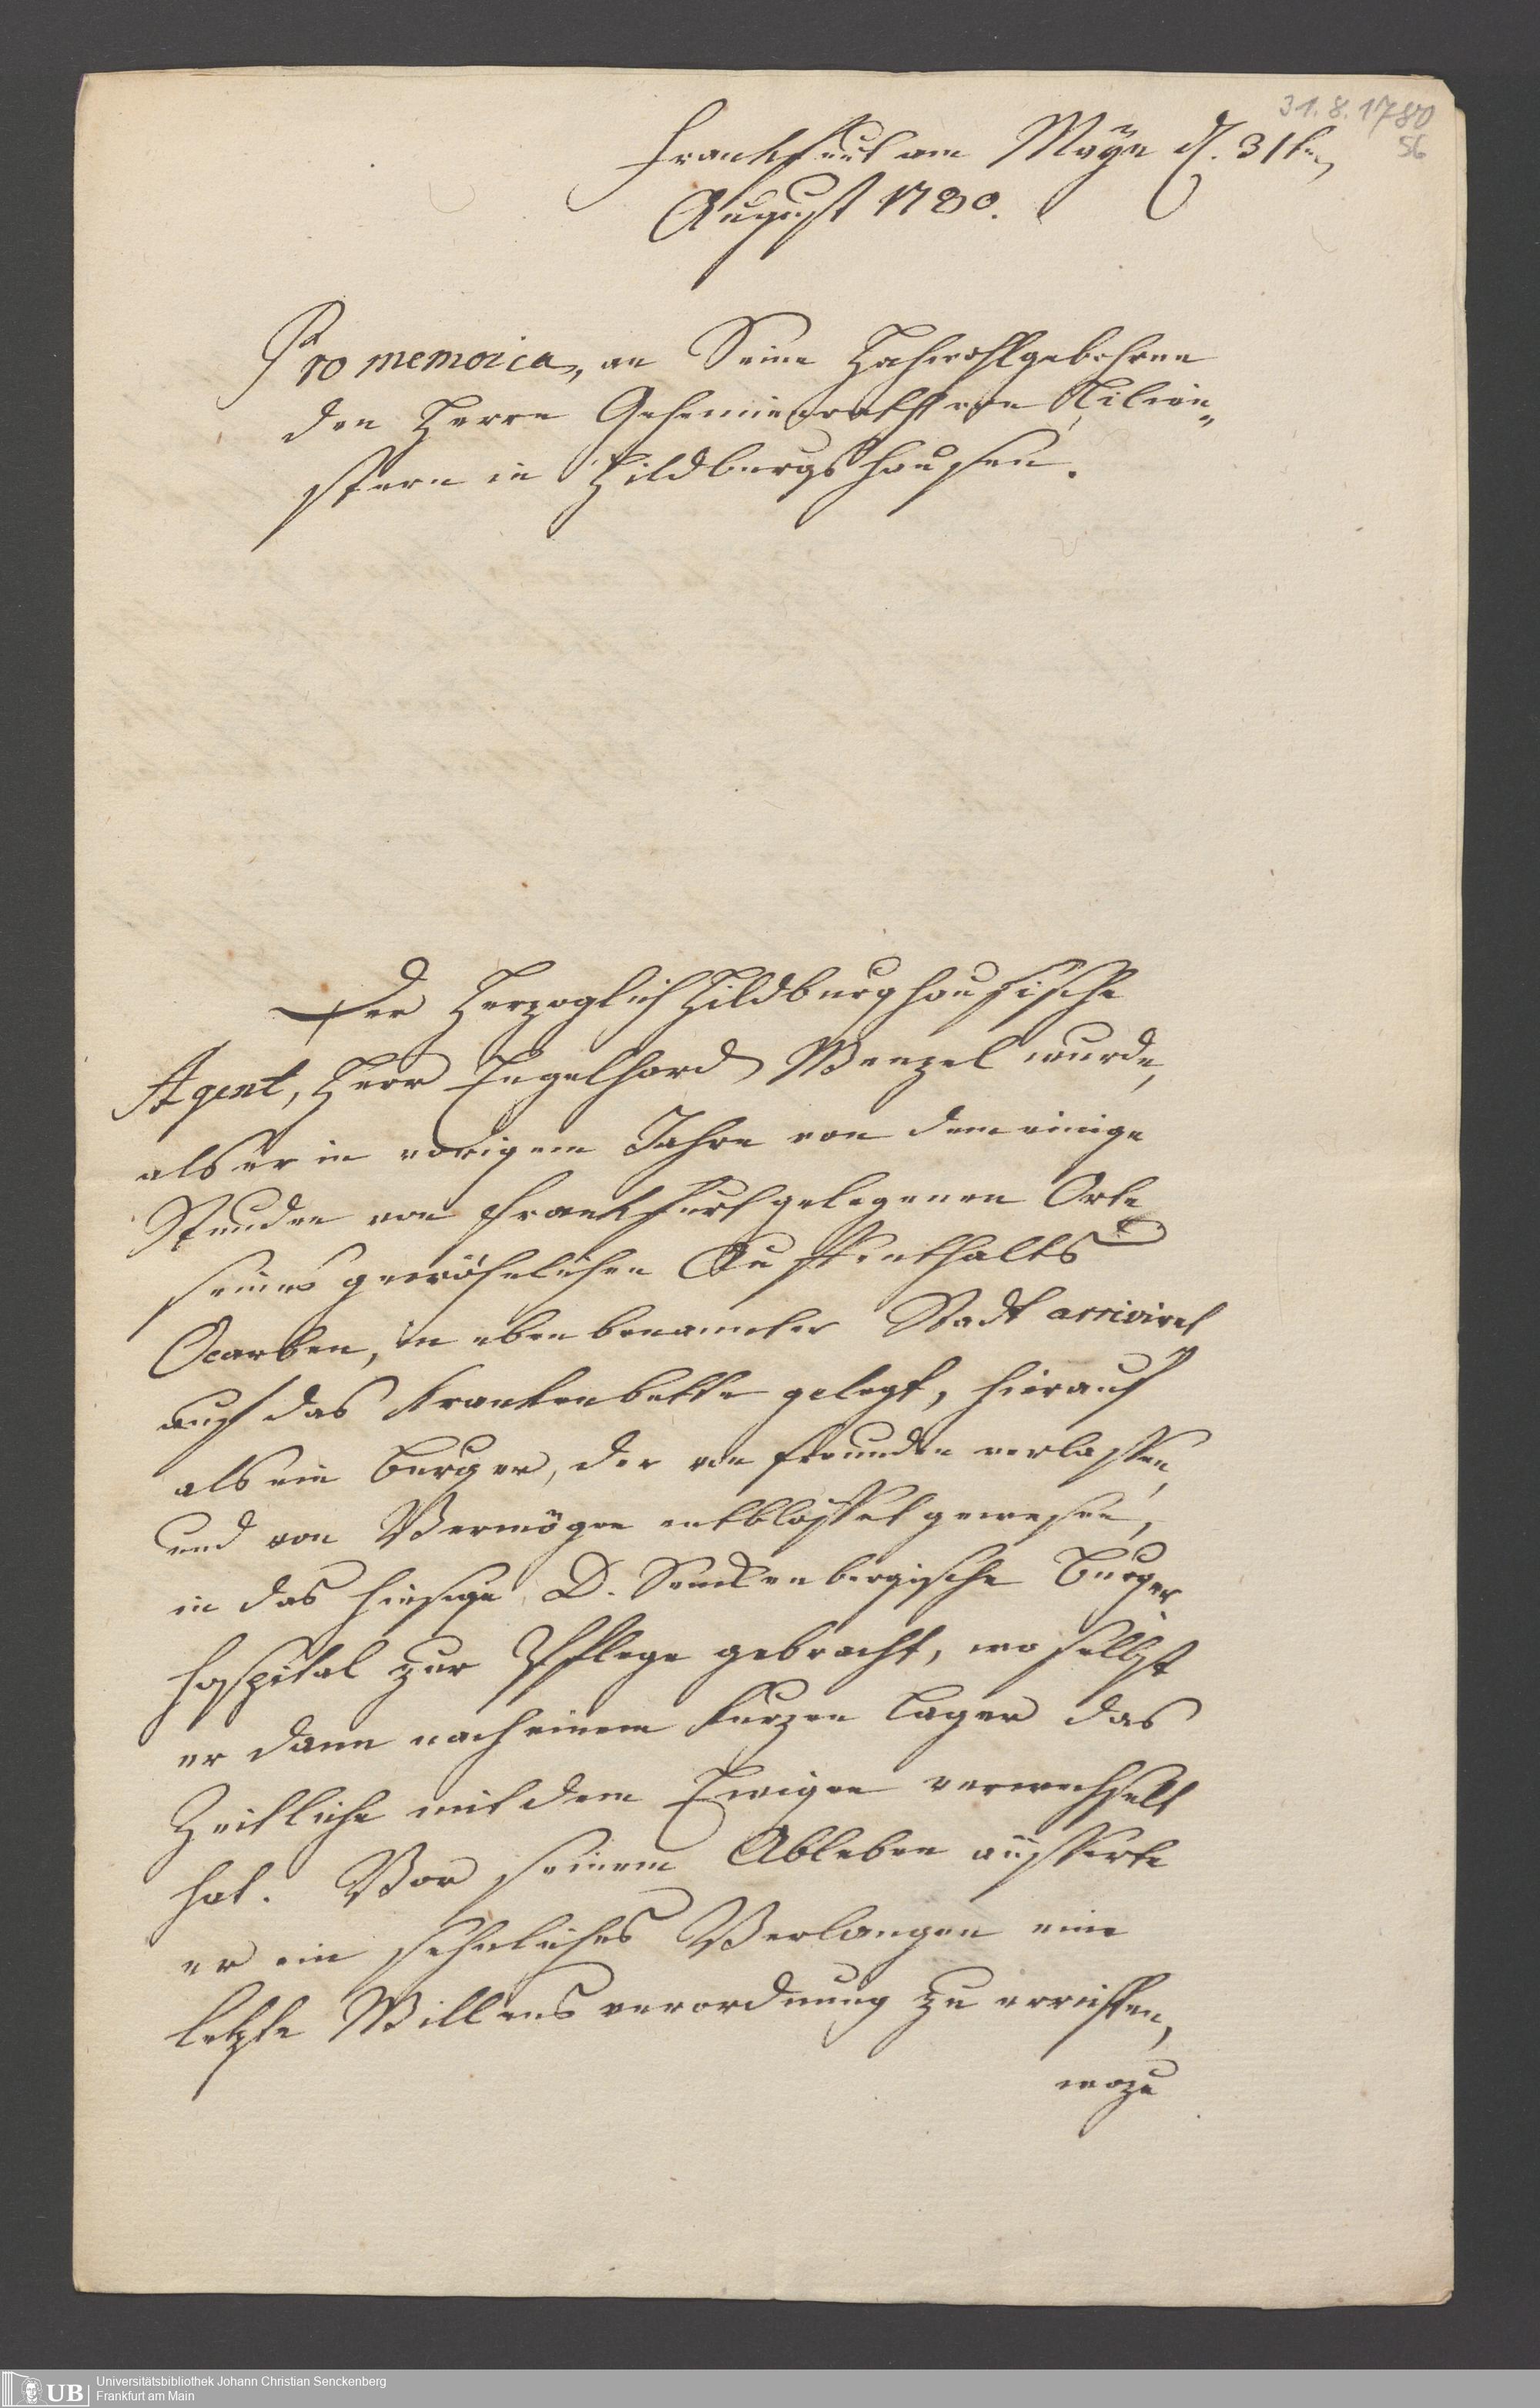 31.8.1780
56
Frankfurt am Mayn d. 31ten
August 1780.
Pro memoria, an Seine Hochwohlgebohren
den Herrn Geheimerath von Lilien-
stern in Hildburgshausen.
Der Herzoglich Hildburghausische
Agent, Herr Engelhard Wenzel wurde,
als er in vorigem Jahre von dem einige
Stunden von Frankfurt gelegenen Orte
seines gewöhnlichen Auffenthalts
Ocarben, in eben benannter Stadt arrivirt
auf das Krankenbette gelegt, hierauf
als ein Burger, der von Freunden verlassen,
und von Vermögen entblösset gewesen,
in das hiesige D. Senckenbergische Burger
hospital zur Pflege gebracht, woselbst
er dann nach einem kurzen Lager das
Zeitliche mit dem Ewigen verwechselt
hat. Vor seinem Ableben äusserte
er ein sehnliches Verlangen eine
letzte Willensverordnung zu errichten,
wozu
UB
Universitätsbibliothek Johann Christian Senckenberg
Frankfurt am Main